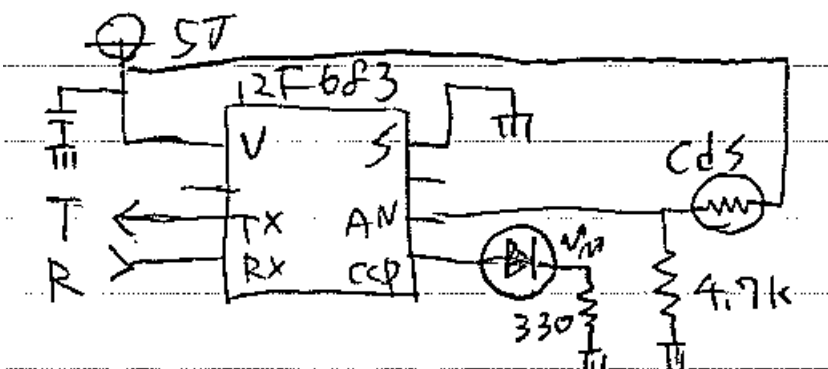 5V
12F683
V
S
CdS
T
TX
AN
R
RX
CCP
330
4.7k